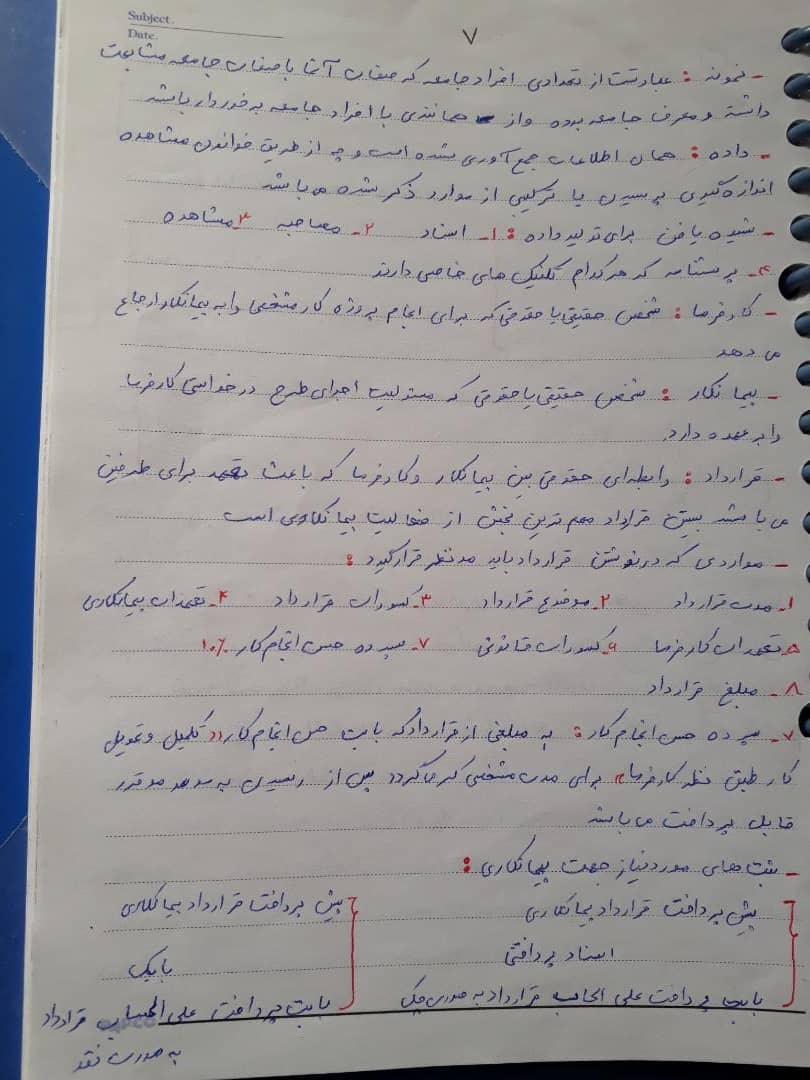 Subject.
Date.
۷
- نمونه : عبارتست از تعدادی افراد جامعه که صفات آنها با صفات جامعه مشابهت
داشته و معرف جامعه بوده و از همانندی با افراد جامعه برخوردار باشد
- داده : همان اطلاعات جمع آوری شده است و چه از طریق خواندن مشاهده
اندازه گیری پرسیدن یا ترکیبی از موارد ذکر شده می باشد
- شیوه یا فن برای تولید داده : ۱- اسناد ۲- مصاحبه ۳- مشاهده
۴- پرسشنامه که هر کدام تکنیک های خاصی دارند
- کارفرما : شخص حقیقی یا حقوقی که برای انجام پروژه کار مشخصی را به پیمانکار ارجاع
می دهد
- پیمانکار : شخص حقیقی یا حقوقی که مسئولیت اجرای طرح درخواستی کارفرما
را بر عهده دارد
- قرارداد : رابطه ای حقوقی بین پیمانکار و کارفرما که باعث تعهد برای طرفین
می باشد بستن قرارداد مهم ترین بخش از فعالیت پیمانکاری است
- مواردی که در نوشتن قرارداد باید مدنظر قرار گیرد :
۱- مدت قرارداد ۲- موضوع قرارداد ۳- کسورات قرارداد ۴- تعهدات پیمانکاری
۵- تعهدات کارفرما ۶- کسورات قانونی ۷- سپرده حسن انجام کار ۱۰٪
۸- مبلغ قرارداد
۷- سپرده حسن انجام کار : به مبلغی از قرارداد که بابت حسن انجام کار «تکمیل و تحویل
کار طبق نظر کارفرما» برای مدت مشخصی کسر میگردد پس از رسیدن به موعد مقرر
قابل پرداخت می باشد
- ثبت های مورد نیاز جهت پیمانکاری :
پیش پرداخت قرارداد پیمانکاری پیش پرداخت قرارداد پیمانکاری
اسناد پرداختی بانک
بابت پرداخت علی الحساب قرارداد به صورت چک بابت پرداخت علی الحساب قرارداد
به صورت نقد